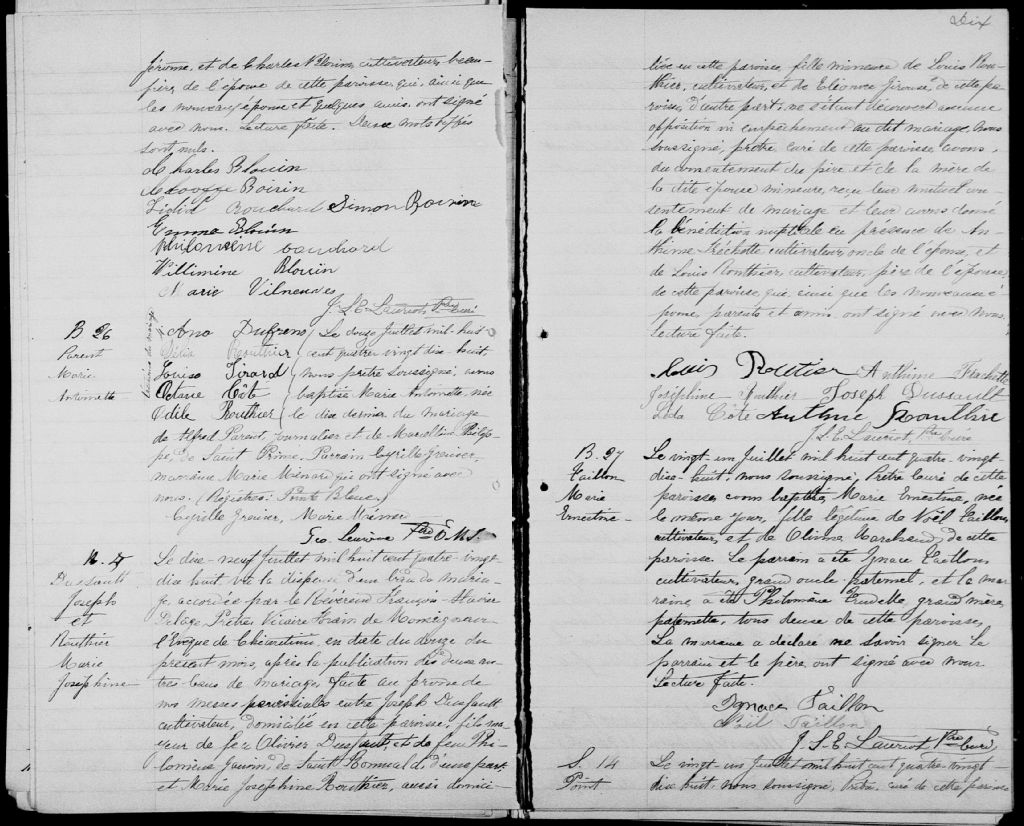 Jérôme, et de Charles Blouin, cultivateur, beau-
père, de l'épouse de cette paroisse, qui, ainsi que
les nouveaux époux et quelques amis ont signé
avec nous. Lecture faite. Deux mots
sont nuls.
Charles Blouin
Boivin
Bouchard Simon Boivin
Emma Blouin
bouchard
Willimine Blouin
Marie Villeneuve
J. S. E. Lauriot Ptre Curé
B 26
Parent
Marie
Antoinette
Le douze Juillet mil huit
Routhier cent quatre vingt dix huit,
Louise Girard nous prêtre soussigné, avons
Octave Côté baptisé Marie Antoinette, née
Odile Routhier le dix dernier, du mariage
de Alfred Parent, journalier et de
de Saint Prime. Parrain Cyrille Grenier,
marraine Marie Ménard qui ont signé avec
nous. (Registres: Pointe Bleue,)
Cyrille Grenier, Marie Ménard
Geo. Lemoine Ptre O.M.I.
M. 7
Dussault
Joseph
et
Routhier
Marie
Josephine
Le dix-neuf Juillet mil huit cent quatre-vingt
dix huit, vu la dispense d'un ban de maria-
ge, accordée par le Révérend François-Xavier
Pelage Prêtre, Vicaire Forain de Monseigneur
l'Evêque de Chicoutimi, en date du douze du
présent mois, après la publication des deux au-
tres bans de mariage, faite au prône de
nos messes paroissiales entre Joseph Dussault
cultivateur, domicilié en cette paroisse, fils ma-
jeur de feu Olivier Dussault, et de feue Phi-
lomène de Saint Romuald, d'une part,
et Marie Josephine Routhier, aussi domici-
Dix
liée en cette paroisse, fille mineure de Louis Rou-
thier, cultivateur, et de Eléonore Giroux, de cette pa-
roisse, d'autre part; ne s'étant découvert aucune
opposition ni empêchement au dit mariage, Nous
soussigné, prêtre curé de cette paroisse, avons,
du consentement du père et de la mère de
la dite épouse mineure, reçu leur mutuel con-
sentement de mariage et leur avons donné
la bénédiction nuptiale en présence de An-
thime Fréchette cultivateur, oncle de l'époux, et
de Louis Routhier cultivateur, père de l'épouse
de cette paroisse, qui, ainsi que les nouveaux é-
poux, parents et amis, ont signé avec nous.
Lecture faite.
Louis Routier Anthime Frachette
Joséphine Routhier Joseph Dussault
Côté Anthime Routhier
J. S. E. Lauriot, Ptre Curé
B. 27
Taillon
Marie
Ernestine
Le vingt un Juillet mil huit cent quatre-vingt
dix-huit, nous soussigné, Prêtre Curé de cette
paroisse, avons baptisé, Marie Ernestine, née
le même jour, fille légitime de Noël Taillon,
cultivateur, et de Olivine Marchand, de cette
paroisse. Le parrain a été Ignace Taillon
cultivateur, grand oncle paternel, et la mar-
raine a été Philomène Trudelle, grand'mère
paternelle, tous deux de cette paroisse,
La marraine a déclaré ne savoir signer Le
parrain et le père ont signé avec nous
Lecture faite.
Ignace Taillon
Noël Taillon
J. S. E. Lauriot Ptre Curé,
S. 14
Le vingt-un Juillet mil huit cent quatre-vingt-
dix-huit, nous soussigné, Prêtre, curé de cette paroisse